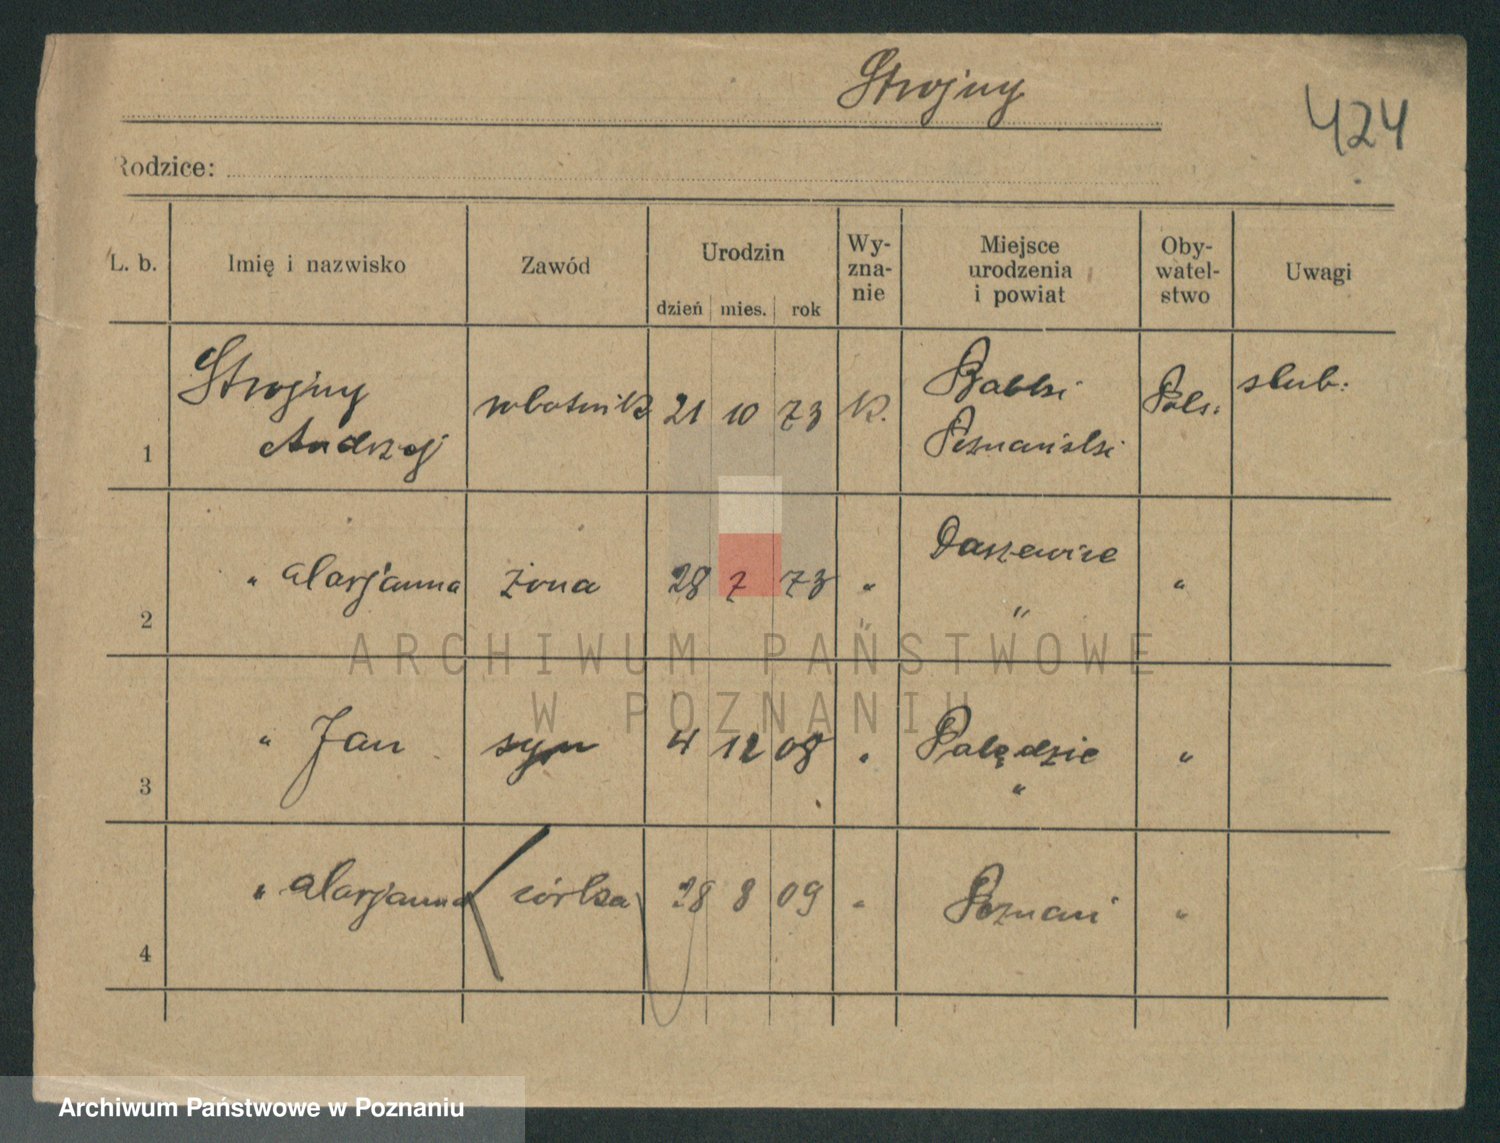 Strojny
424
Rodzice:
L. b. Imię i nazwisko Zawód Urodzin dzień mies. rok Wy-zna-nie Miejsce urodzenia i powiat Oby-watel-stwo Uwagi
1 Strojny Andrzej robotnik 21 10 73 k. Babki Poznański Pols: slub:
2 " Marjanna żona 28 7 73 " Daszewice " "
3 " Jan syn 4 12 08 " Palędzie " "
4 " Marjanna córka 28 8 09 " Poznań "
ARCHIWUM PAŃSTWOWE
W POZNANIU
Archiwum Państwowe w Poznaniu